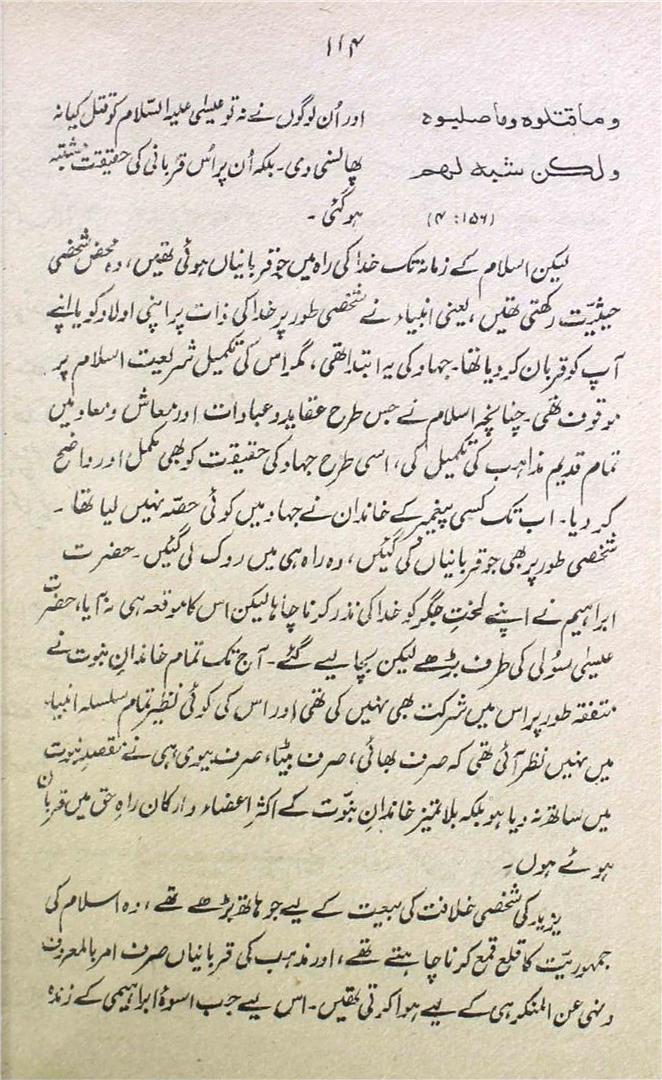 ۱۱۴
وما قتلوه وما صلبوه
ولكن شبه لهم
(۱۵۶ : ۴)
اور اُن لوگوں نے نہ تو عیسٰی علیہ السّلام کو قتل کیا نہ
پھانسی دی۔ بلکہ اُن پر اُس قربانی کی حقیقت مشتبہ
ہوگئی۔
لیکن اسلام کے زمانہ تک خدا کی راہ میں جو قربانیاں ہوئی تھیں، وہ محض شخصی
حیثیّت رکھتی تھیں، یعنی انبیاء نے شخصی طور پر خدا کی ذات پر اپنی اولاد کو یا اپنے
آپ کو قربان کر دیا تھا۔ جہاد کی یہ ابتدا تھی، مگر اس کی تکمیل شریعت اسلام پر
موقوف تھی۔ چنانچہ اسلام نے جس طرح عقاید و عبادات اور معاش و معاد میں
تمام قدیم مذاہب کی تکمیل کی، اسی طرح جہاد کی حقیقت کو بھی مکمل اور واضح
کر دیا۔ اب تک کسی پیغمبر کے خاندان نے جہاد میں کوئی حصّہ نہیں لیا تھا۔
شخصی طور پر بھی جو قربانیاں کی گئیں، وہ راہ ہی میں روک لی گئیں۔ حضرت
ابراہیم نے اپنے لختِ جگر کو خدا کی نذر کرنا چاہا لیکن اس کا موقعہ ہی نہ آیا، حضرت
عیسٰی سُولی کی طرف بڑھے لیکن بچا لیے گئے۔ آج تک تمام خاندانِ نبوت نے
متفقہ طور پر اس میں شرکت بھی نہیں کی تھی اور اس کی کوئی نظیر تمام سلسلہ انبیاء
میں نہیں نظر آئی تھی کہ صرف بھائی، صرف بیٹا، صرف بیوی ہی نے مقصدِ نبوت
میں ساتھ نہ دیا ہو بلکہ بلا تمیز خاندانِ نبوّت کے اکثر اعضاء و ارکان راہِ حق میں قربان
ہوئے ہوں۔
یزید کی شخصی خلافت کی بیعت کے لیے جو ہاتھ بڑھے تھے، وہ اسلام کی
جمہوریّت کا قلع قمع کرنا چاہتے تھے، اور مذہب کی قربانیاں صرف امر بالمعروف
و نہی عن المنکر ہی کے لیے ہوا کرتی تھیں۔ اس لیے جب اسوۂ ابراہیمی کے زندہ